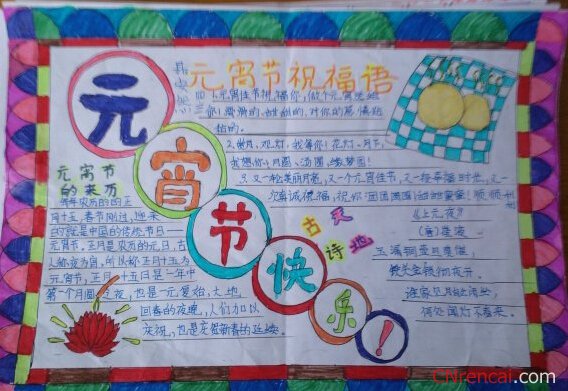 元宵节快乐!
元宵节祝福语
1.元宵佳节祝福你,做个元宵送给
你!滑滑的,甜甜的,对你的思情粘
粘的。
2.赏月,观灯,我等你!花灯,月下,
我想你!月圆、汤圆、缘梦圆!
3.又一轮美丽月亮,又一个元宵佳节,又一
诚祝福,祝你:团团圆圆
元宵节
的来历
每年农历的正
月十五,春节刚过,迎来
的就是中国的传统节日——
元宵节。正月是农历的元月,古
人称夜为宵,所以称正月十五为
元宵节。正月十五日是一年中
第一个月圆之夜,也是一元复始,大地
回春的夜晚,人们加以
庆祝,也是庆贺新春的延续。
古诗
《上元夜》
(唐)崔液
玉漏铜壶且莫催,
铁关金锁彻夜开。
谁家见月能闲坐,
何处闻灯不看来。
cnrencai.com